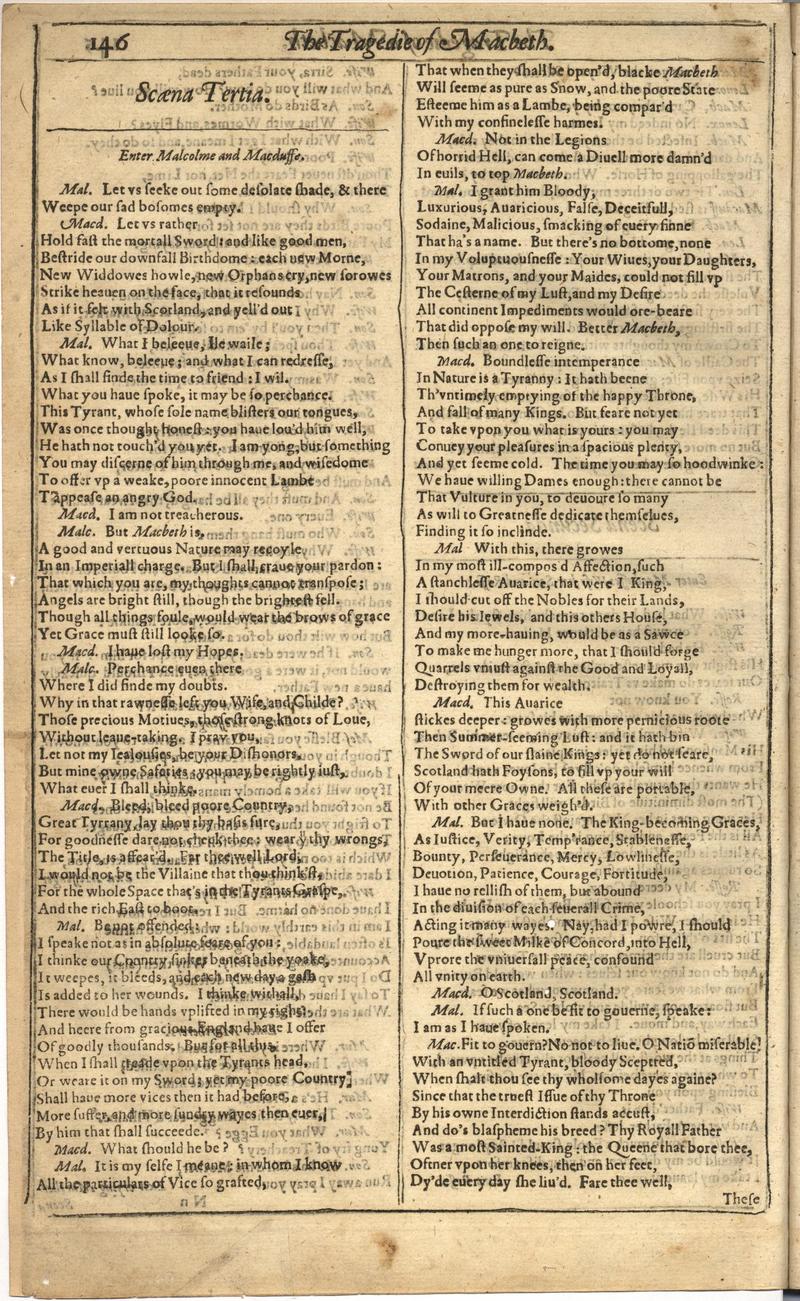 146
The Tragedie of Macbeth.
Scæna Tertia.
Enter Malcolme and Macduffe.
Mal. Let vs seeke out some desolate shade, & there
Weepe our sad bosomes empty.
Macd. Let vs rather
Hold fast the mortall Sword: and like good men,
Bestride our downfall Birthdome: each new Morne,
New Widdowes howle, new Orphans cry, new sorowes
Strike heauen on the face, that it resounds
As if it felt with Scotland, and yell'd out
Like Syllable of Dolour.
Mal. What I beleeue, Ile waile;
What know, beleeue; and what I can redresse,
As I shall finde the time to friend: I wil.
What you haue spoke, it may be so perchance.
This Tyrant, whose sole name blisters our tongues,
Was once thought honest: you haue lou'd him well,
He hath not touch'd you yet. I am yong, but something
You may discerne of him through me, and wisedome
To offer vp a weake, poore innocent Lambe
T'appease an angry God.
Macd. I am not treacherous.
Malc. But Macbeth is,
A good and vertuous Nature may recoyle
In an Imperiall charge. But I shall craue your pardon:
That which you are, my thoughts cannot transpose;
Angels are bright still, though the brightest fell.
Though all things foule, would wear the brows of grace
Yet Grace must still looke so.
Macd. I haue lost my Hopes.
Malc. Perchance euen there
Where I did finde my doubts.
Why in that rawnesse left you Wife, and Childe?
Those precious Motiues, those strong knots of Loue,
Without leaue-taking. I pray you,
Let not my Iealousies, be your Dishonors,
But mine owne Safeties: you may be rightly iust,
What euer I shall thinke.
Macd. Bleed, bleed poore Country,
Great Tyrrany, lay thou thy basis sure,
For goodnesse dare not check thee: wear y thy wrongs,
The Title, is affear'd. Far thee well Lord,
I would not be the Villaine that thou think'st,
For the whole Space that's in the Tyrants Graspe,
And the rich East to boot.
Mal. Be not offended:
I speake not as in absolute feare of you:
I thinke our Country sinkes beneath the yoake,
It weepes, it bleeds, and each new day a gash
Is added to her wounds. I thinke withall,
There would be hands vplifted in my right:
And heere from gracious England haue I offer
Of goodly thousands. But for all this,
When I shall treade vpon the Tyrants head,
Or weare it on my Sword; yet my poore Country
Shall haue more vices then it had before,
More suffer, and more sundry wayes then euer,
By him that shall succeede.
Macd. What should he be?
Mal. It is my selfe I meane: in whom I know
All the particulars of Vice so grafted,
That when they shall be open'd, blacke Macbeth
Will seeme as pure as Snow, and the poore State
Esteeme him as a Lambe, being compar'd
With my confinelesse harmes.
Macd. Not in the Legions
Of horrid Hell, can come a Diuell more damn'd
In euils, to top Macbeth.
Mal. I grant him Bloody,
Luxurious, Auaricious, False, Deceitfull,
Sodaine, Malicious, smacking of euery sinne
That ha's a name. But there's no bottome, none
In my Voluptuousnesse: Your Wiues, your Daughters,
Your Matrons, and your Maides, could not fill vp
The Cesterne of my Lust, and my Desire
All continent Impediments would ore-beare
That did oppose my will. Better Macbeth,
Then such an one to reigne.
Macd. Boundlesse intemperance
In Nature is a Tyranny: It hath beene
Th'vntimely emptying of the happy Throne,
And fall of many Kings. But feare not yet
To take vpon you what is yours: you may
Conuey your pleasures in a spacious plenty,
And yet seeme cold. The time you may so hoodwinke:
We haue willing Dames enough: there cannot be
That Vulture in you, to deuoure so many
As will to Greatnesse dedicate themselues,
Finding it so inclinde.
Mal With this, there growes
In my most ill-compos d Affection, such
A stanchlesse Auarice, that were I King,
I should cut off the Nobles for their Lands,
Desire his Iewels, and this others House,
And my more-hauing, would be as a Sawce
To make me hunger more, that I should forge
Quarrels vniust against the Good and Loyall,
Destroying them for wealth.
Macd. This Auarice
stickes deeper: growes with more pernicious roote
Then Summer-seeming Lust: and it hath bin
The Sword of our slaine Kings: yet do not feare,
Scotland hath Foysons, to fill vp your will
Of your meere Owne. All these are portable,
With other Graces weigh'd.
Mal. But I haue none. The King-becoming Graces,
As Iustice, Verity, Temp'rance, Stablenesse,
Bounty, Perseuerance, Mercy, Lowlinesse,
Deuotion, Patience, Courage, Fortitude,
I haue no rellish of them, but abound
In the diuision of each seuerall Crime,
Acting it many wayes. Nay, had I powre, I should
Poure the sweet Milke of Concord, into Hell,
Vprore the vniuersall peace, confound
All vnity on earth.
Macd. O Scotland, Scotland.
Mal. If such a one be fit to gouerne, speake:
I am as I haue spoken.
Mac. Fit to gouern? No not to liue. O Natiõ miserable!
With an vntitled Tyrant, bloody Sceptred,
When shalt thou see thy wholsome dayes againe?
Since that the truest Issue of thy Throne
By his owne Interdiction stands accust,
And do's blaspheme his breed? Thy Royall Father
Was a most Sainted-King: the Queene that bore thee,
Oftner vpon her knees, then on her feet,
Dy'de euery day she liu'd. Fare thee well,
These